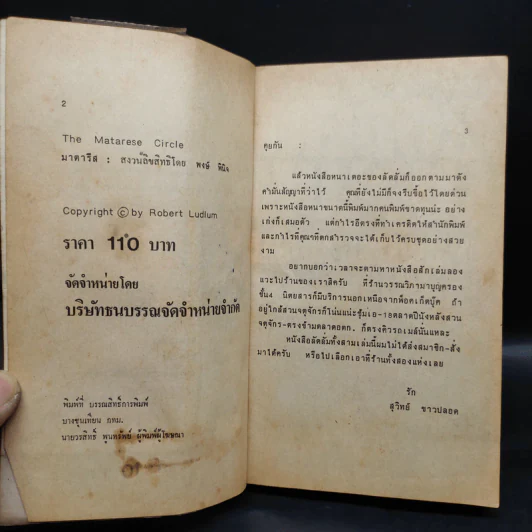 2
The Matarese Circle
มาตารีส : สงวนลิขสิทธิ์โดย พงษ์ พินิจ
Copyright © by Robert Ludlum
ราคา 110 บาท
จัดจำหน่ายโดย
บริษัทธนบรรณจัดจำหน่ายจำกัด
พิมพ์ที่ บรรณสิทธิ์การพิมพ์
บางขุนเทียน กทม.
นายวรสิทธิ์ พูนทรัพย์ ผู้พิมพ์ผู้โฆษณา
3
คุยกัน :
แล้วหนังสือหนาเตอะของลัดลั่มก็ออกตามมาดัง
คำมั่นสัญญาที่ว่าไว้ คุณที่ยังไม่มีก็จงรีบซื้อไว้โดยด่วน
เพราะหนังสือหนาขนาดนี้พิมพ์มากคนพิมพ์ขาดทุนน่ะ อย่าง
เก่งก็เสมอตัว แต่กำไรอีตรงที่ทำเครดิตให้สำนักพิมพ์
และกำไรที่คุณๆที่ตกสำรวจจะได้เก็บไว้ครบชุดอย่างสวย
งาม
อยากบอกว่าเวลาจะตามหาหนังสือสักเล่มลอง
แวะไปร้านของเราสิครับ ที่ร้านวรรณวิภามาบุญครอง
ชั้น4 นิตยสารก็มีบริการนอกเหนือจากพ็อคเก็ตบุ๊ค ถ้า
อยู่ใกล้สวนจตุจักรก็โน่นแน่ะซุ้มเอ-18ตลาดปีนังหลังสวน
จตุจักร-ตรงข้ามตลาดอตก. ก็ตรงคิวรถเมล์นั่นแหละ
หนังสือลัดลั่มทั้งสามเล่มนี้ผมไม่ได้ส่งสมาชิก-สั่ง
มาได้ครับ หรือไปเลือกเอาที่ร้านทั้งสองแห่งเลย
รัก
สุวิทย์ ขาวปลอด